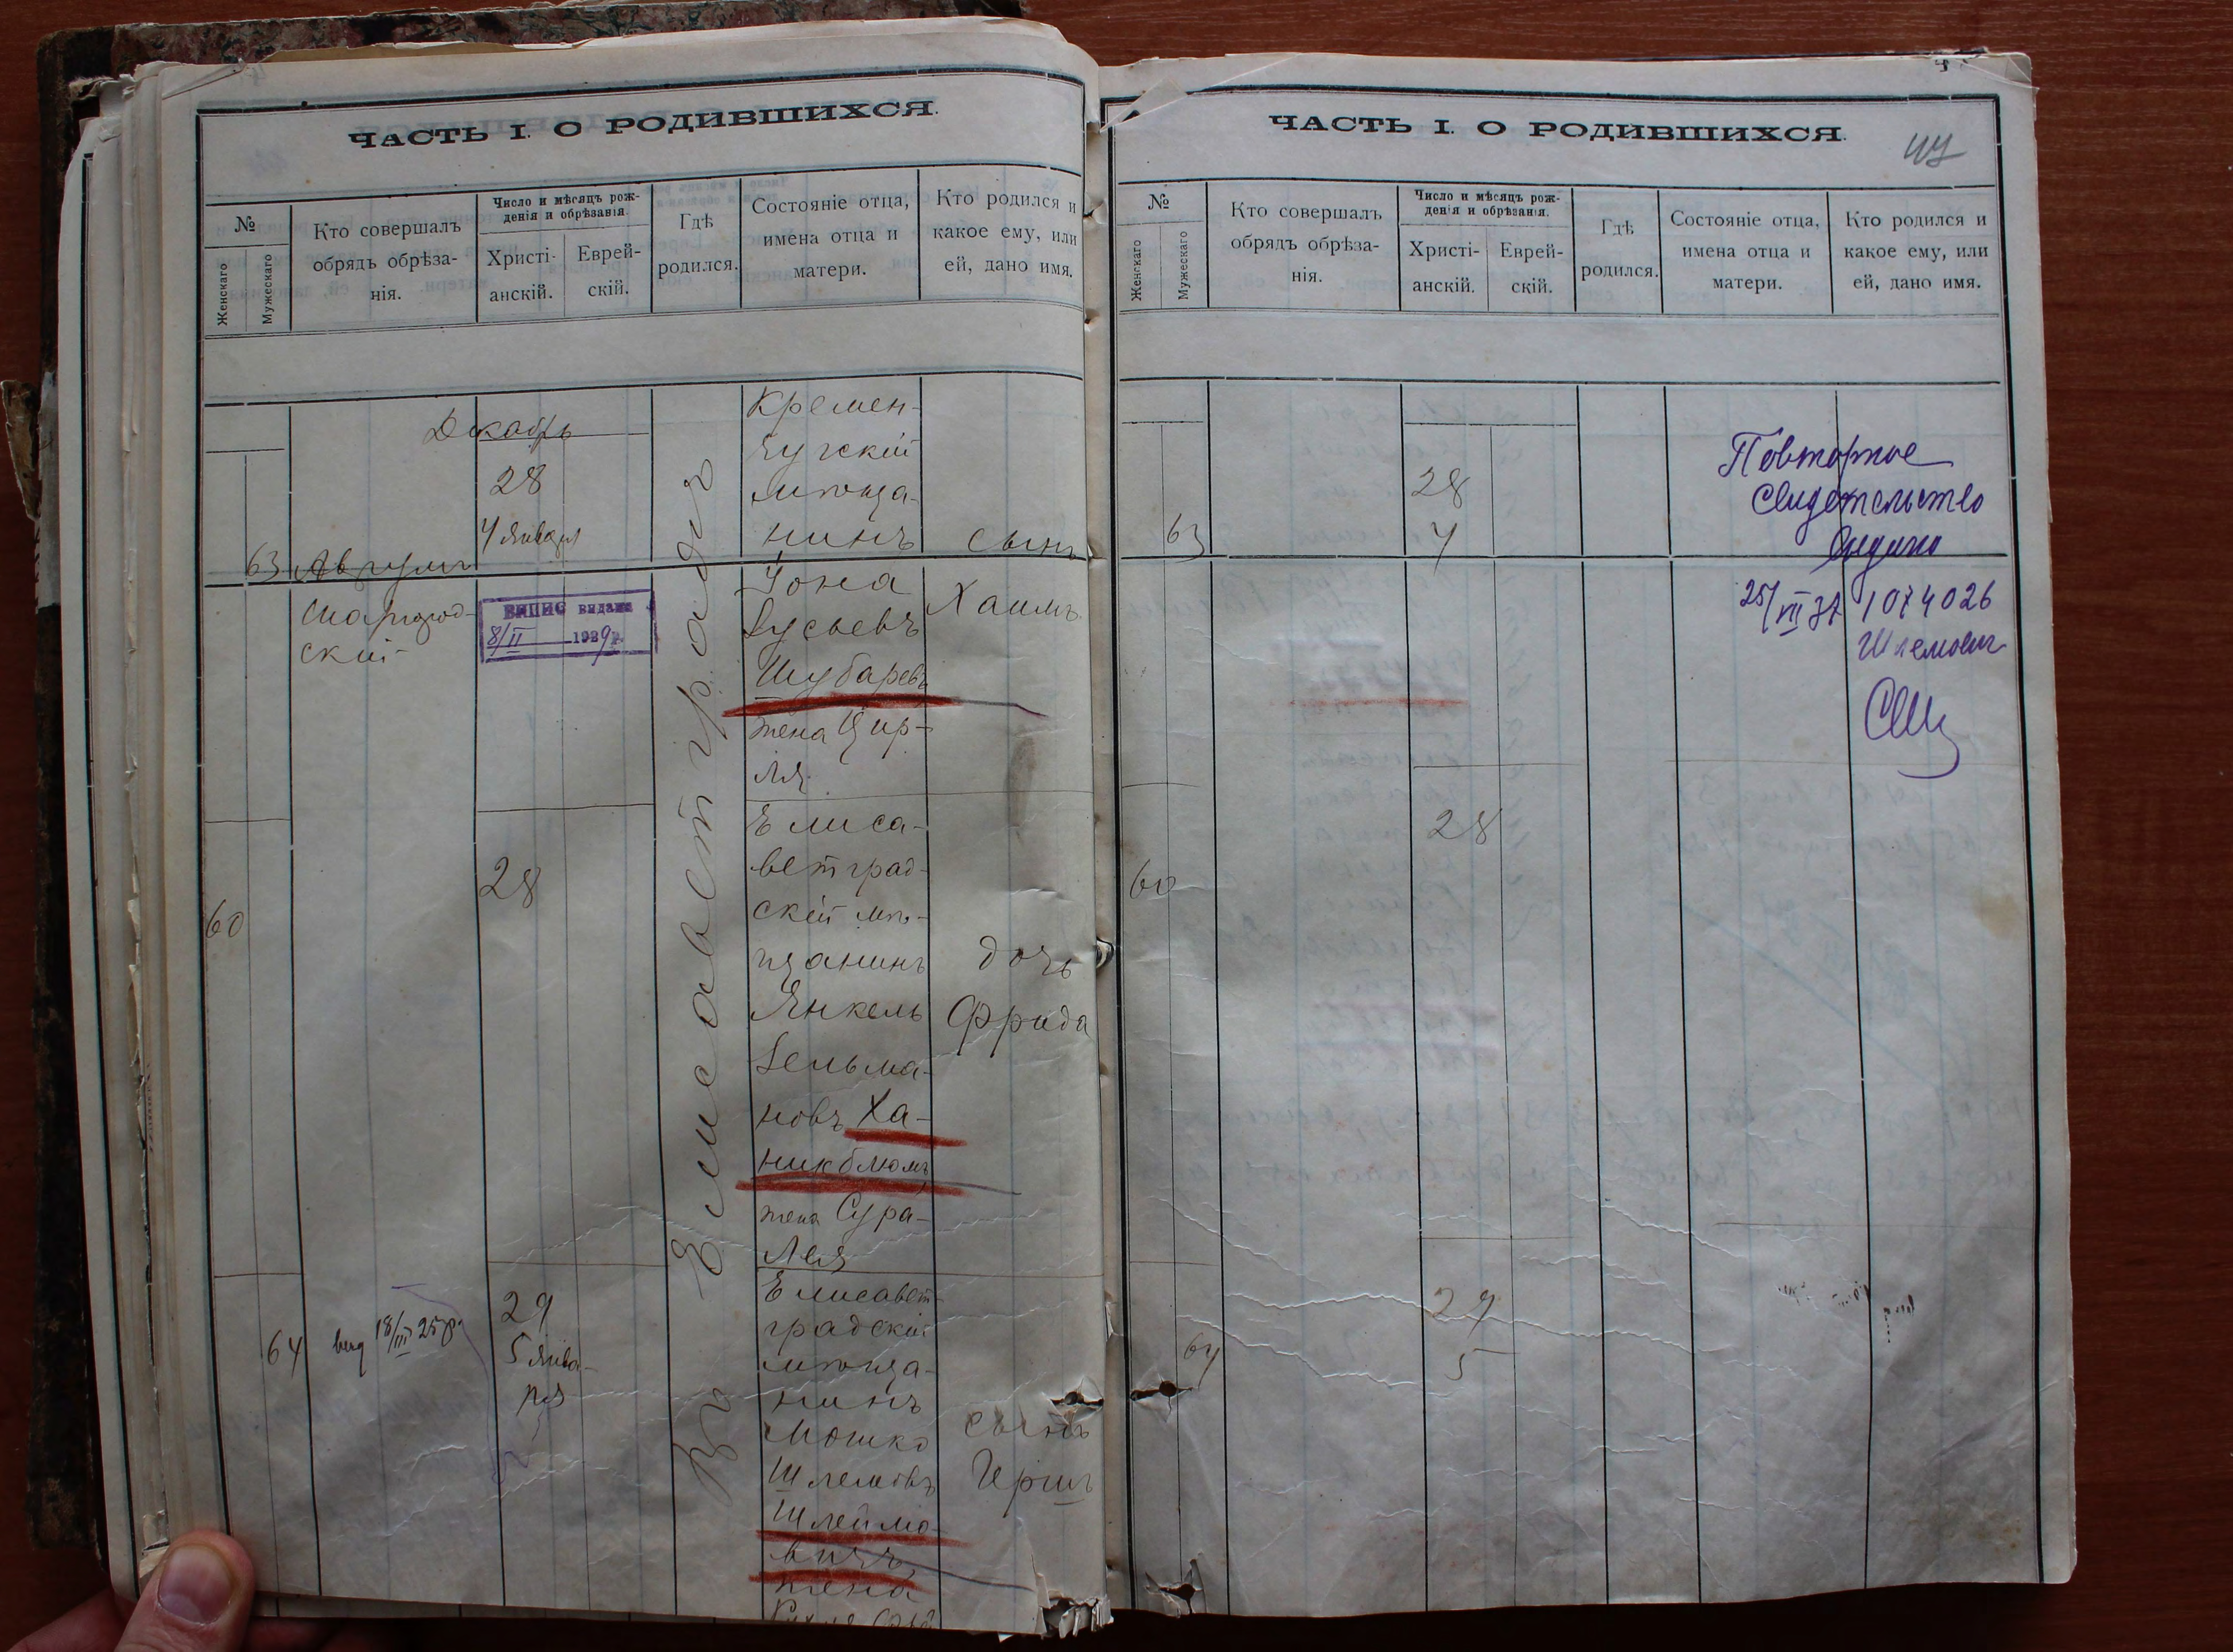 ЧАСТЬ I. О РОДИВШИХСЯ.
№
Женскаго
Мужескаго
Кто совершалъ
обрядъ обрѣза-
нія.
Число и мѣсяцъ рож-
денія и обрѣзанія.
Христі-
анскій.
Еврей-
скій.
Гдѣ
родился.
Состояніе отца,
имена отца и
матери.
Кто родился и
какое ему, или
ей, дано имя.
63
Аврумъ
Шаргород-
скій
Декабрь
28
4 Января
ВИПИС видано
8/II 1929 р.
Въ Елисаветградѣ
Кремен-
чугскій
мѣща-
нинъ
Іона
Зусьевъ
Шубаревъ
жена Цир-
ля
сынъ
Хаимъ
60
28
Елиса-
ветград-
скій мѣ-
щанинъ
Янкель
Зельма-
новъ Ха-
никблюмъ
жена Сура-
Лея
дочь
Фрида
64
18/III 25 р.
29
5 Янва-
ря
Елисавет-
градскій
мѣща-
нинъ
Мошко
Шлемовъ
Шлеймо-
вичъ
жена
сынъ
Гершъ
ЧАСТЬ I. О РОДИВШИХСЯ.
№
Женскаго
Мужескаго
Кто совершалъ
обрядъ обрѣза-
нія.
Число и мѣсяцъ рож-
денія и обрѣзанія.
Христі-
анскій.
Еврей-
скій.
Гдѣ
родился.
Состояніе отца,
имена отца и
матери.
Кто родился и
какое ему, или
ей, дано имя.
63
28
4
Повторное
свидетельство
видано
25/VII 37 1074026
60
28
64
29
5